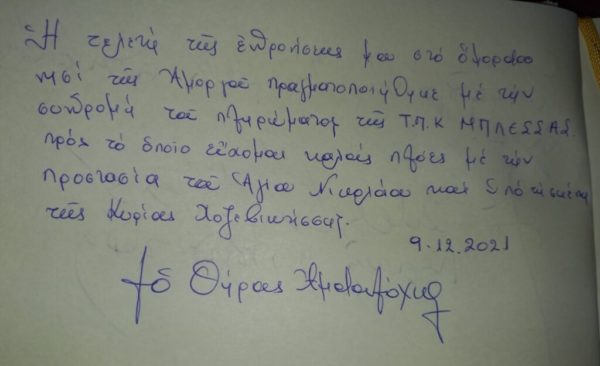 Ἡ τελετή τῆς ἐνθρονίσεως μου στό ὄμορφο
νησί τῆς Ἀμοργοῦ πραγματοποιήθηκε μέ τήν
συνδρομή τοῦ πληρώματος τῆς Τ.Π.Κ ΜΠΛΕΣΣΑΣ.
πρός τό ὁποῖο εὔχομαι καλούς πλόες μέ τήν
προστασία τοῦ Ἁγίου Νικολάου καί ὑπό τή σκέπη
τῆς Κυρίας Χοζοβιωτίσσης.
9.12.2021
† ὁ Θήρας Ἀμφιλόχιος